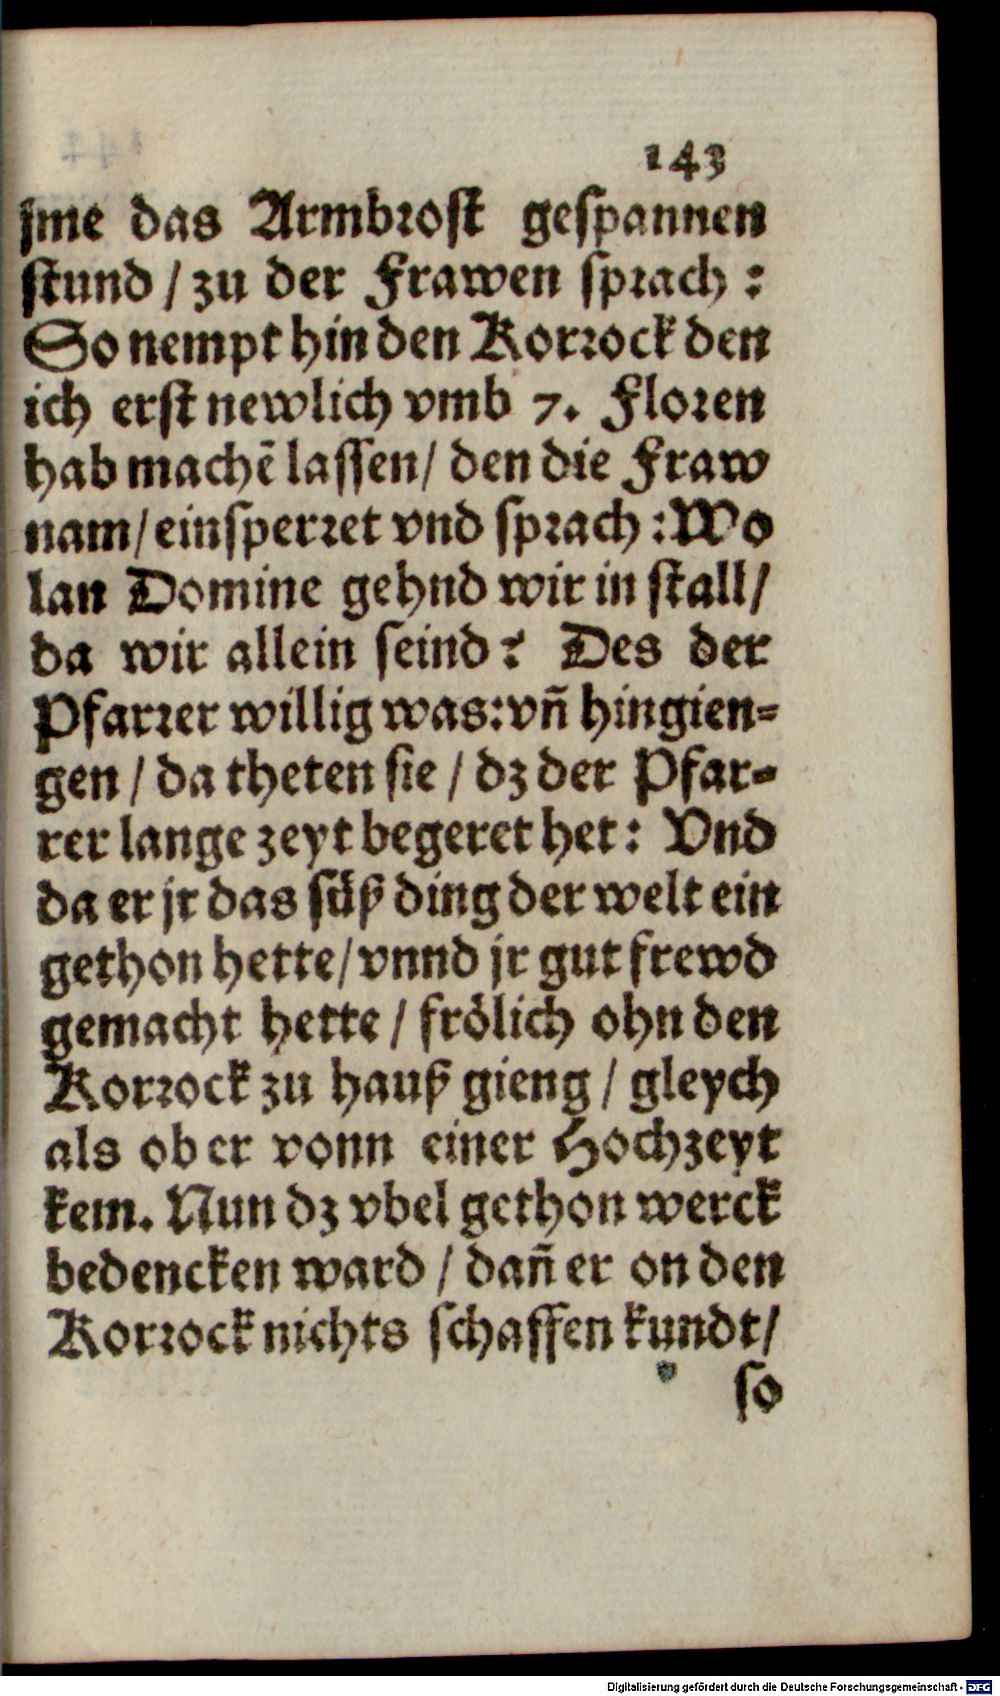 143
jme das Armbrost gespannen
stund / zu der Frawen sprach :
So nempt hin den Korrock den
ich erst newlich vmb 7. Floren
hab machẽ lassen / den die Fraw
nam / einsperret vnd sprach : Wo
lan Domine gehnd wir in stall /
da wir allein seind ? Des der
Pfarrer willig was: vñ hingien-
gen / da theten sie / dz der Pfar-
rer lange zeyt begeret het : Vnd
da er jr das süß ding der welt ein
gethon hette / vnnd jr gut frewd
gemacht hette / frölich ohn den
Korrock zu hauß gieng / gleych
als ob er vonn einer Hochzeyt
kem. Nun dz vbel gethon werck
bedencken ward / dañ er on den
Korrock nichts schaffen kundt /
so
Digitalisierung gefördert durch die Deutsche Forschungsgemeinschaft - DFG